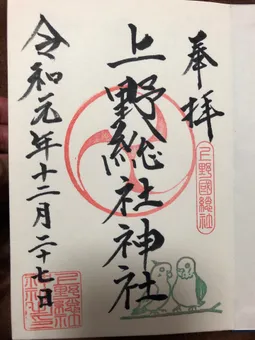 奉拝
上野國総社
上野総社神社
令和元年十二月二十七日